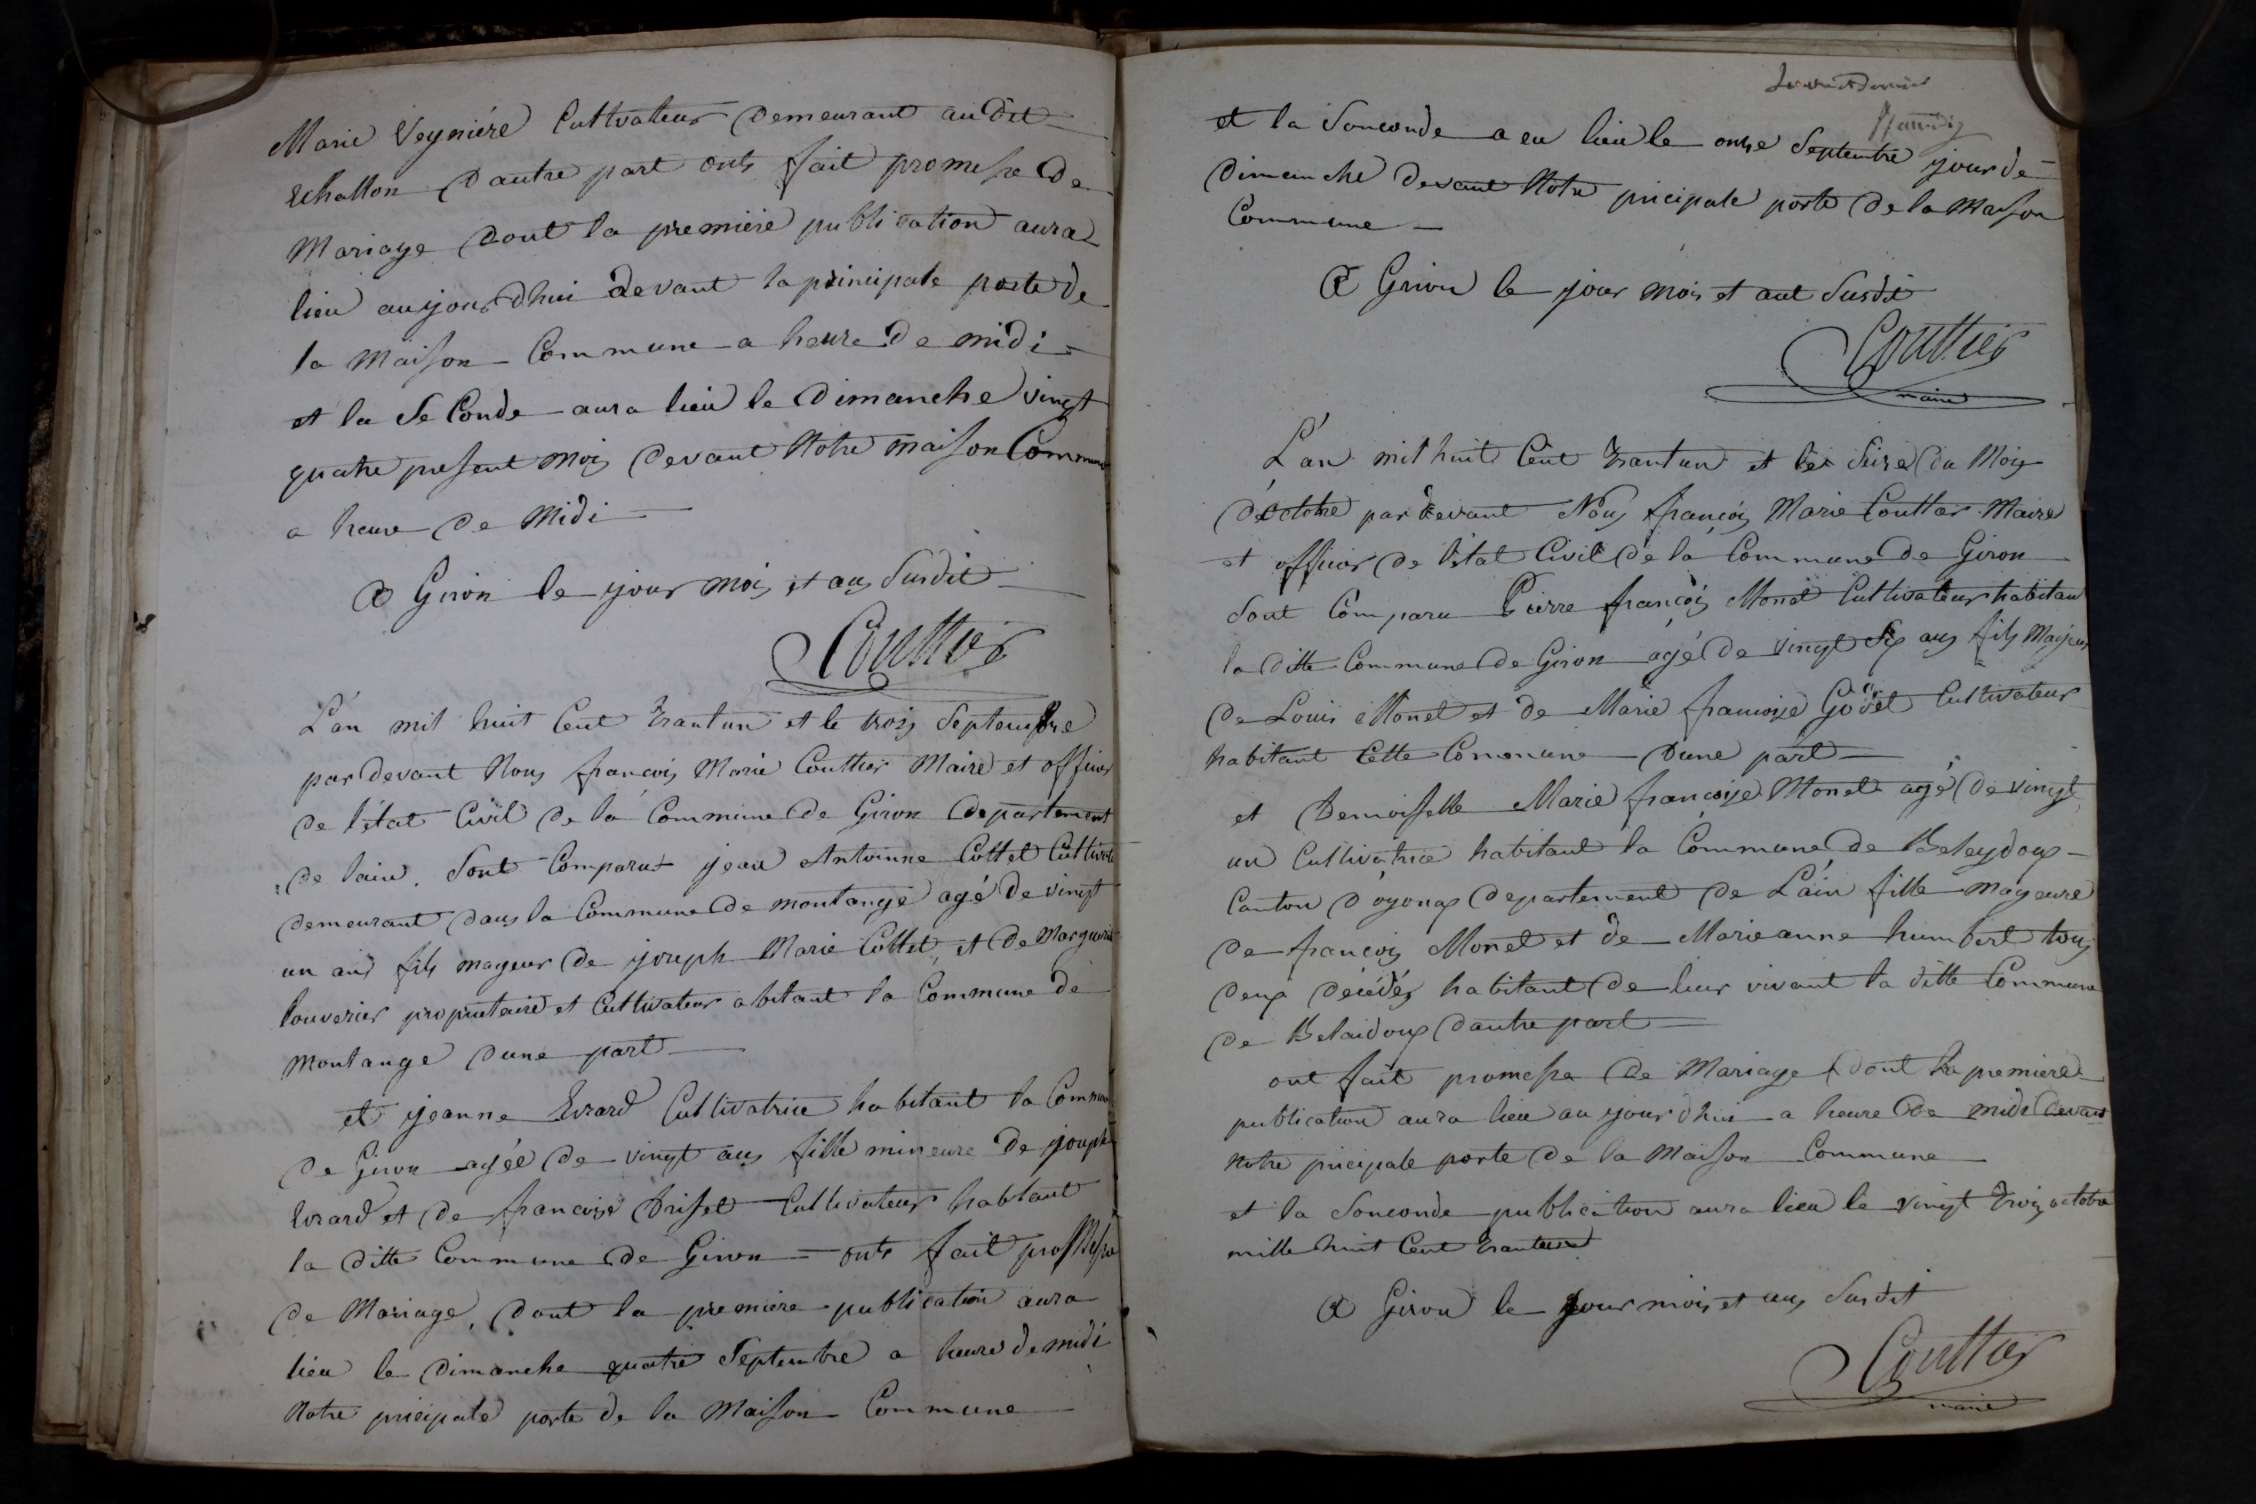 Marie Veyniére Cultivateur demeurant audit
Echallon dautre part onts fait promesse de
Mariage dont la premiére publication aura
lieu aujourdhui devant la principale porte de
la Maison Commune a heure de midi
et la SeConde aura lieu le Dimanche vingt
quatre present mois devant Notre maison Commune
a heure de Midi
a Giron le jour mois et ans Susdit
Couttier
L'an mil huit Cent trantun et le trois Septembre
par devant Nous francois Marie Couttier Maire et officier
de l'état Civil de la Commune de Giron departement
de lain. Sont Comparut jean Antoinne Cottet Cultivate
demeurant dans la Commune de montange agé de vingt
un ans fils mageur de joseph Marie Cottet, et de Marguerite
louverier propriétaire et Cultivateur abitant la Commune de
Montange dune part
et jeanne Evrard Cultivatrice habitant la Commune
de Giron agée de vingt ans fille mineure de joseph
Evrard et de francoise Brifet Cultivateur habitant
la ditte Commune de Giron = onts fait promesse
de Mariage, dont la premiere publication aura
lieu le dimanche quatre Septembre a heure de midi
Notre pricipale porte de la Maison Commune
et la Seconde a eu lieu le onze Septembre jour de
Dimanche devant Notre pricipale porte de la Maison
Commune
A Giron le jour mois et ant Susdit
Couttier
maire
L'an mil huit Cent trantun et le Seize du Mois
d'éctobre par devant Nous françois Marie Couttier Maire
et officier de l'état Civil de la Commune de Giron
Sont Comparu Pierre françois Monet Cultivateur habitant
la ditte Commune de Giron agé de vingt Six ans fils Majeur
de Louis Monet et de Marie francoise Godet Cultivateur
habitant Cette Commune dune part
et Demoiselle Marie francoise Monet agé de vingt
un Cultivatrice habitant la Commune de Beleydoux
Canton d'oyonax departement de L'ain fille mageure
de françois Monet et de Marie anne humbert tous
deux décédés habitant de leur vivant la ditte Commune
de Belaidoux dautre part
ont fait promesse de Mariage dont la premiere
publication aura lieu aujourdhui a heure de midi devant
notre pricipale porte de la Maison Commune
et la Seconde publication aura lieu le vingt trois octobre
mille huit Cent trantun
A Giron le jour mois et ans Susdit
Couttier
maire